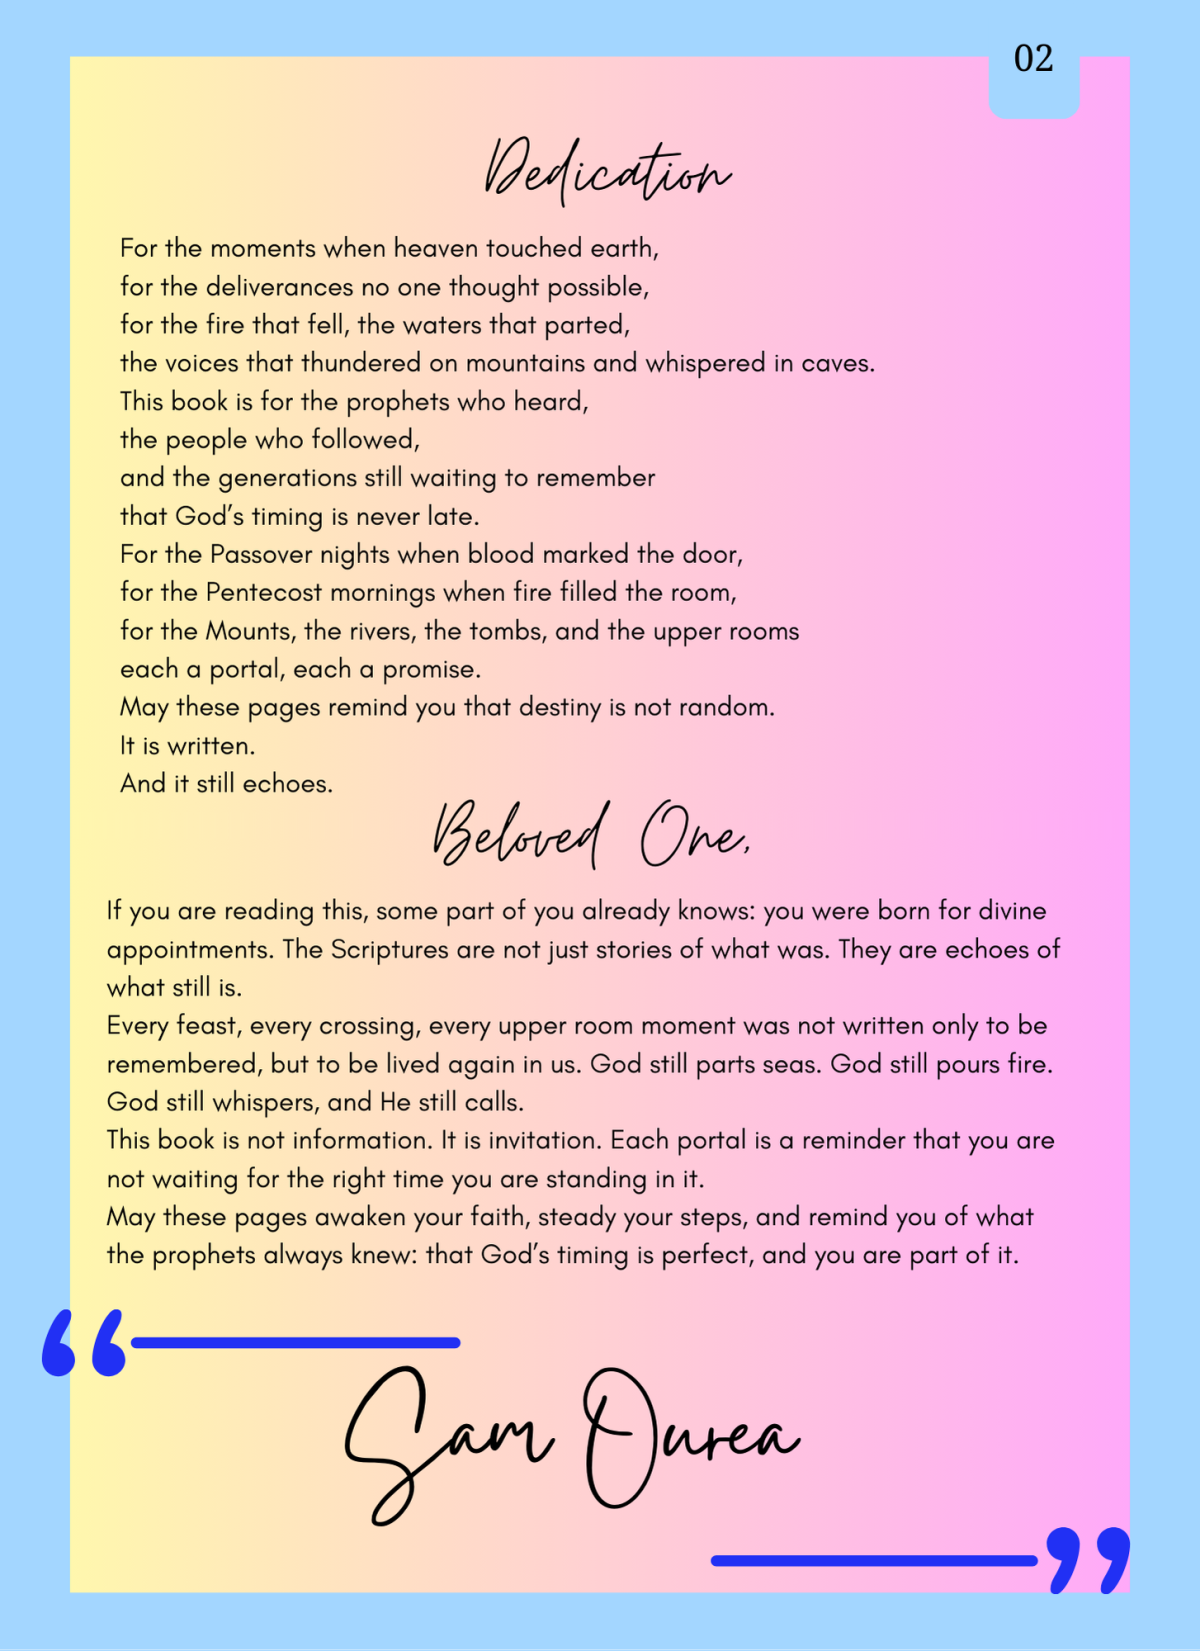 02
Dedication
For the moments when heaven touched earth,
for the deliverances no one thought possible,
for the fire that fell, the waters that parted,
the voices that thundered on mountains and whispered in caves.
This book is for the prophets who heard,
the people who followed,
and the generations still waiting to remember
that God’s timing is never late.
For the Passover nights when blood marked the door,
for the Pentecost mornings when fire filled the room,
for the Mounts, the rivers, the tombs, and the upper rooms
each a portal, each a promise.
May these pages remind you that destiny is not random.
It is written.
And it still echoes.
Beloved One,
If you are reading this, some part of you already knows: you were born for divine
appointments. The Scriptures are not just stories of what was. They are echoes of
what still is.
Every feast, every crossing, every upper room moment was not written only to be
remembered, but to be lived again in us. God still parts seas. God still pours fire.
God still whispers, and He still calls.
This book is not information. It is invitation. Each portal is a reminder that you are
not waiting for the right time you are standing in it.
May these pages awaken your faith, steady your steps, and remind you of what
the prophets always knew: that God’s timing is perfect, and you are part of it.
“
Sam Ourea
”